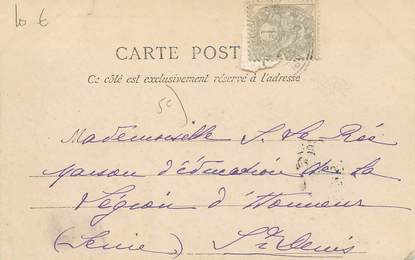 10 €
CARTE POST
Ce côté est exclusivement réservé à l'adresse
5c
Mademoiselle S. Le Rée
Maison d'éducation de la
Légion d'Honneur
(Seine) St Denis